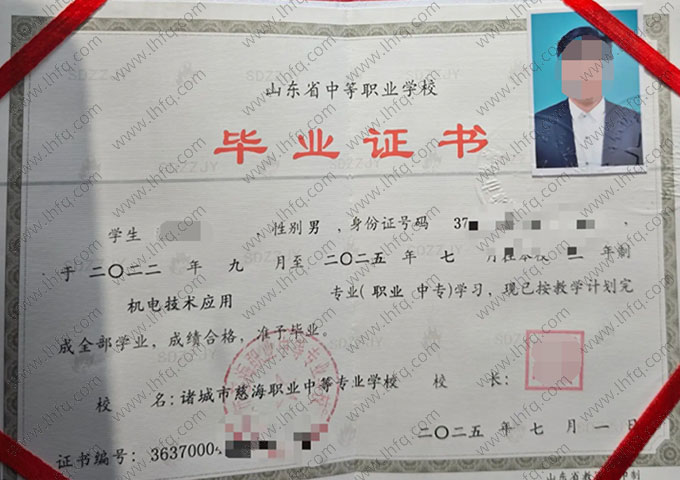 山东省中等职业学校
毕业证书
学生 ，性别 男 ，身份证号码 37
于 二〇二二 年 九 月至 二〇二五 年 七 月在本校 三 年制
机电技术应用 专业( 职业 中专)学习，现已按教学计划完
成全部学业，成绩合格，准予毕业。
校 名：诸城市慈海职业中等专业学校 校 长：
证书编号：3637000
二〇二五 年 七 月 一 日
山东省教
制
SDZZJY
www.lhfq.com